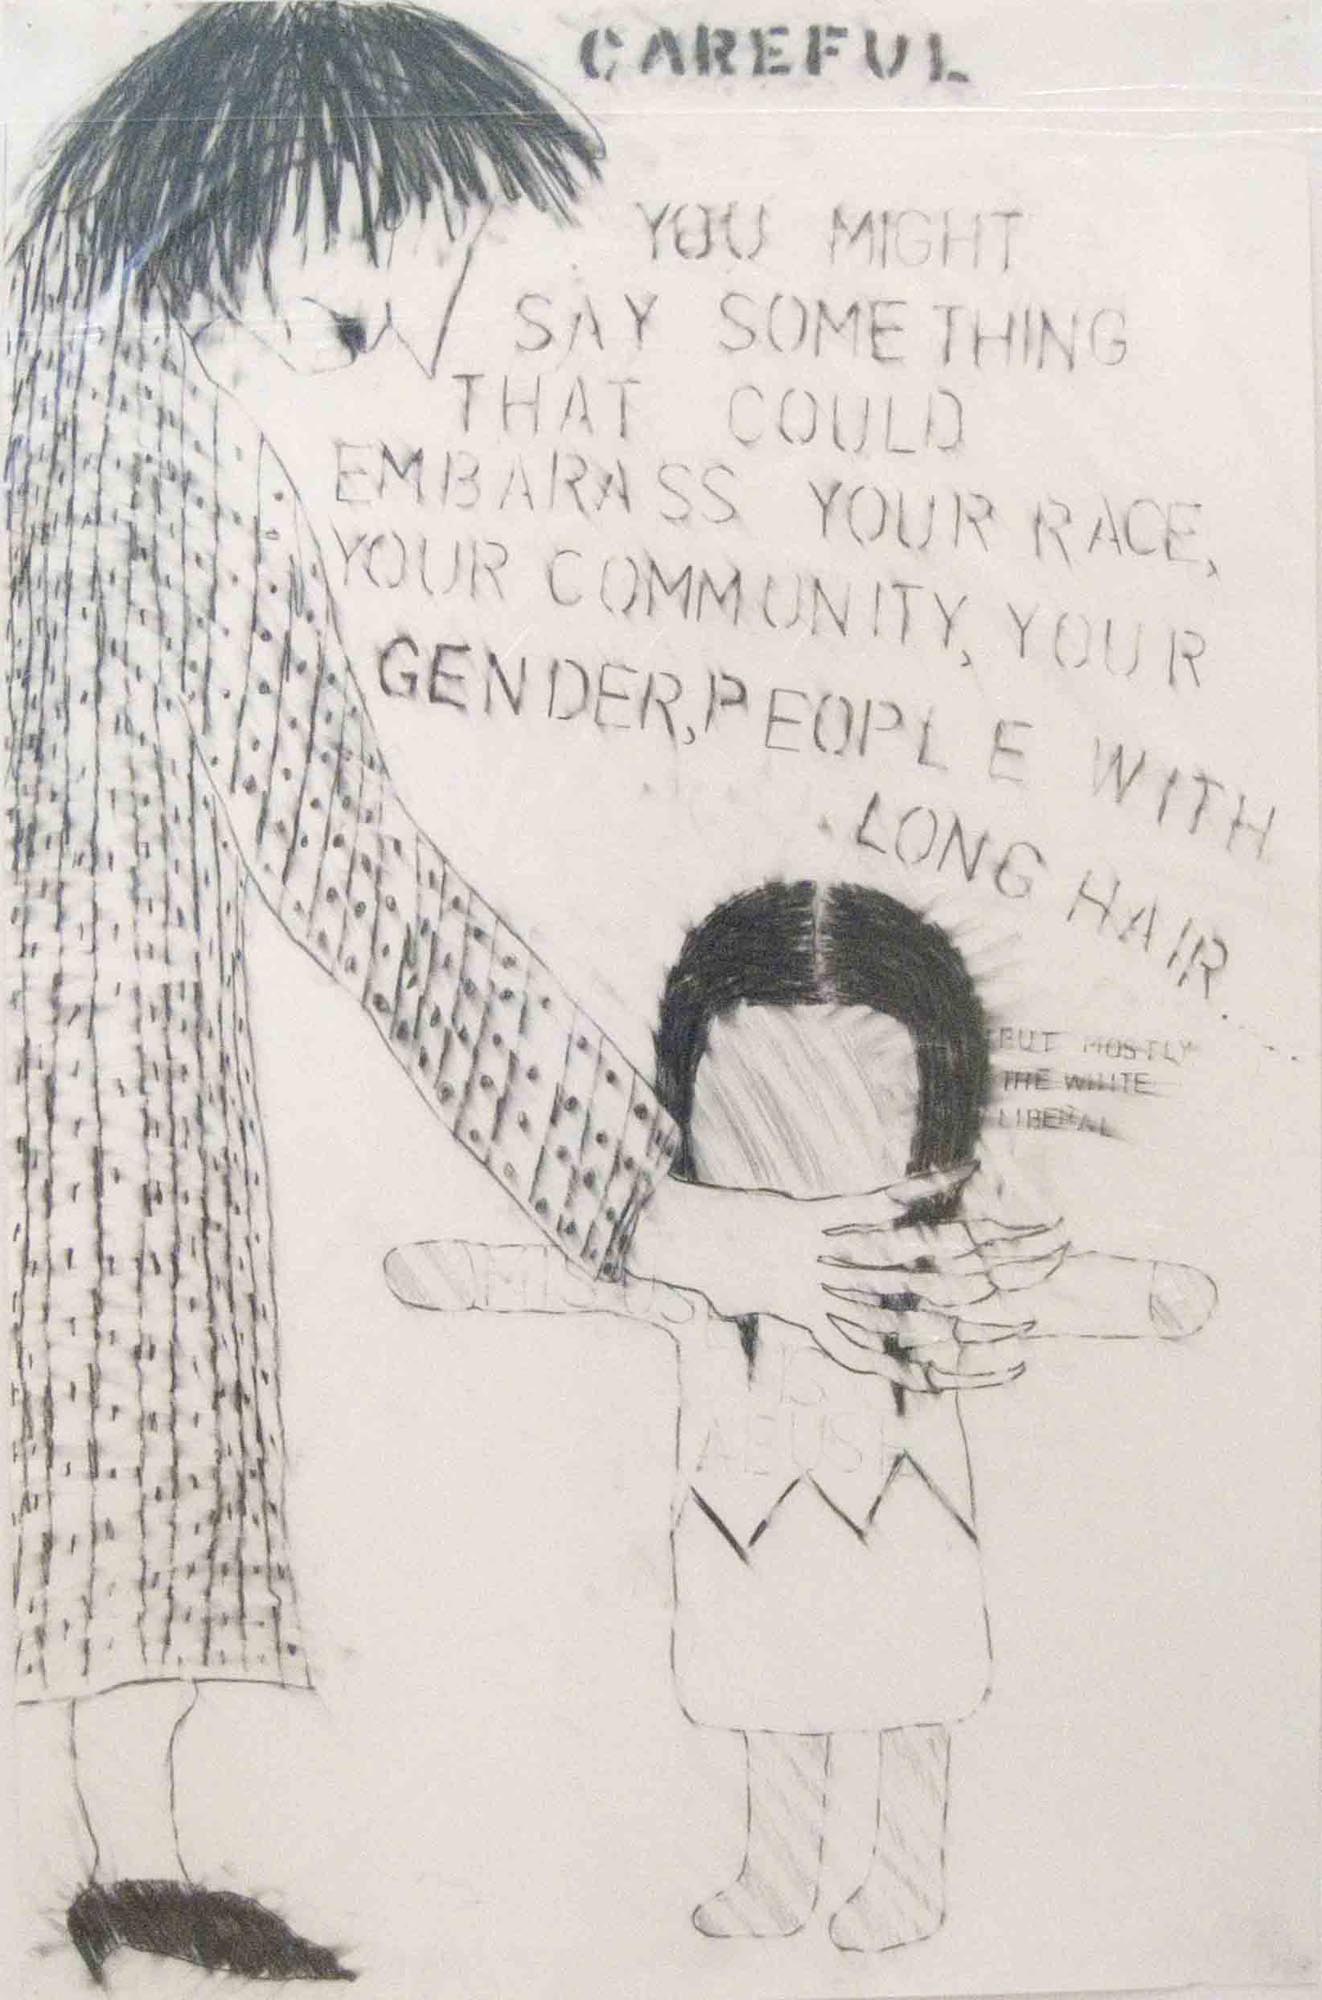 CAREFUL
YOU MIGHT
SAY SOMETHING
THAT COULD
EMBARASS YOUR RACE,
YOUR COMMUNITY, YOUR
GENDER, PEOPLE WITH
LONG HAIR
BUT MOSTLY
THE WHITE
LIBERAL
IS
ABUSE